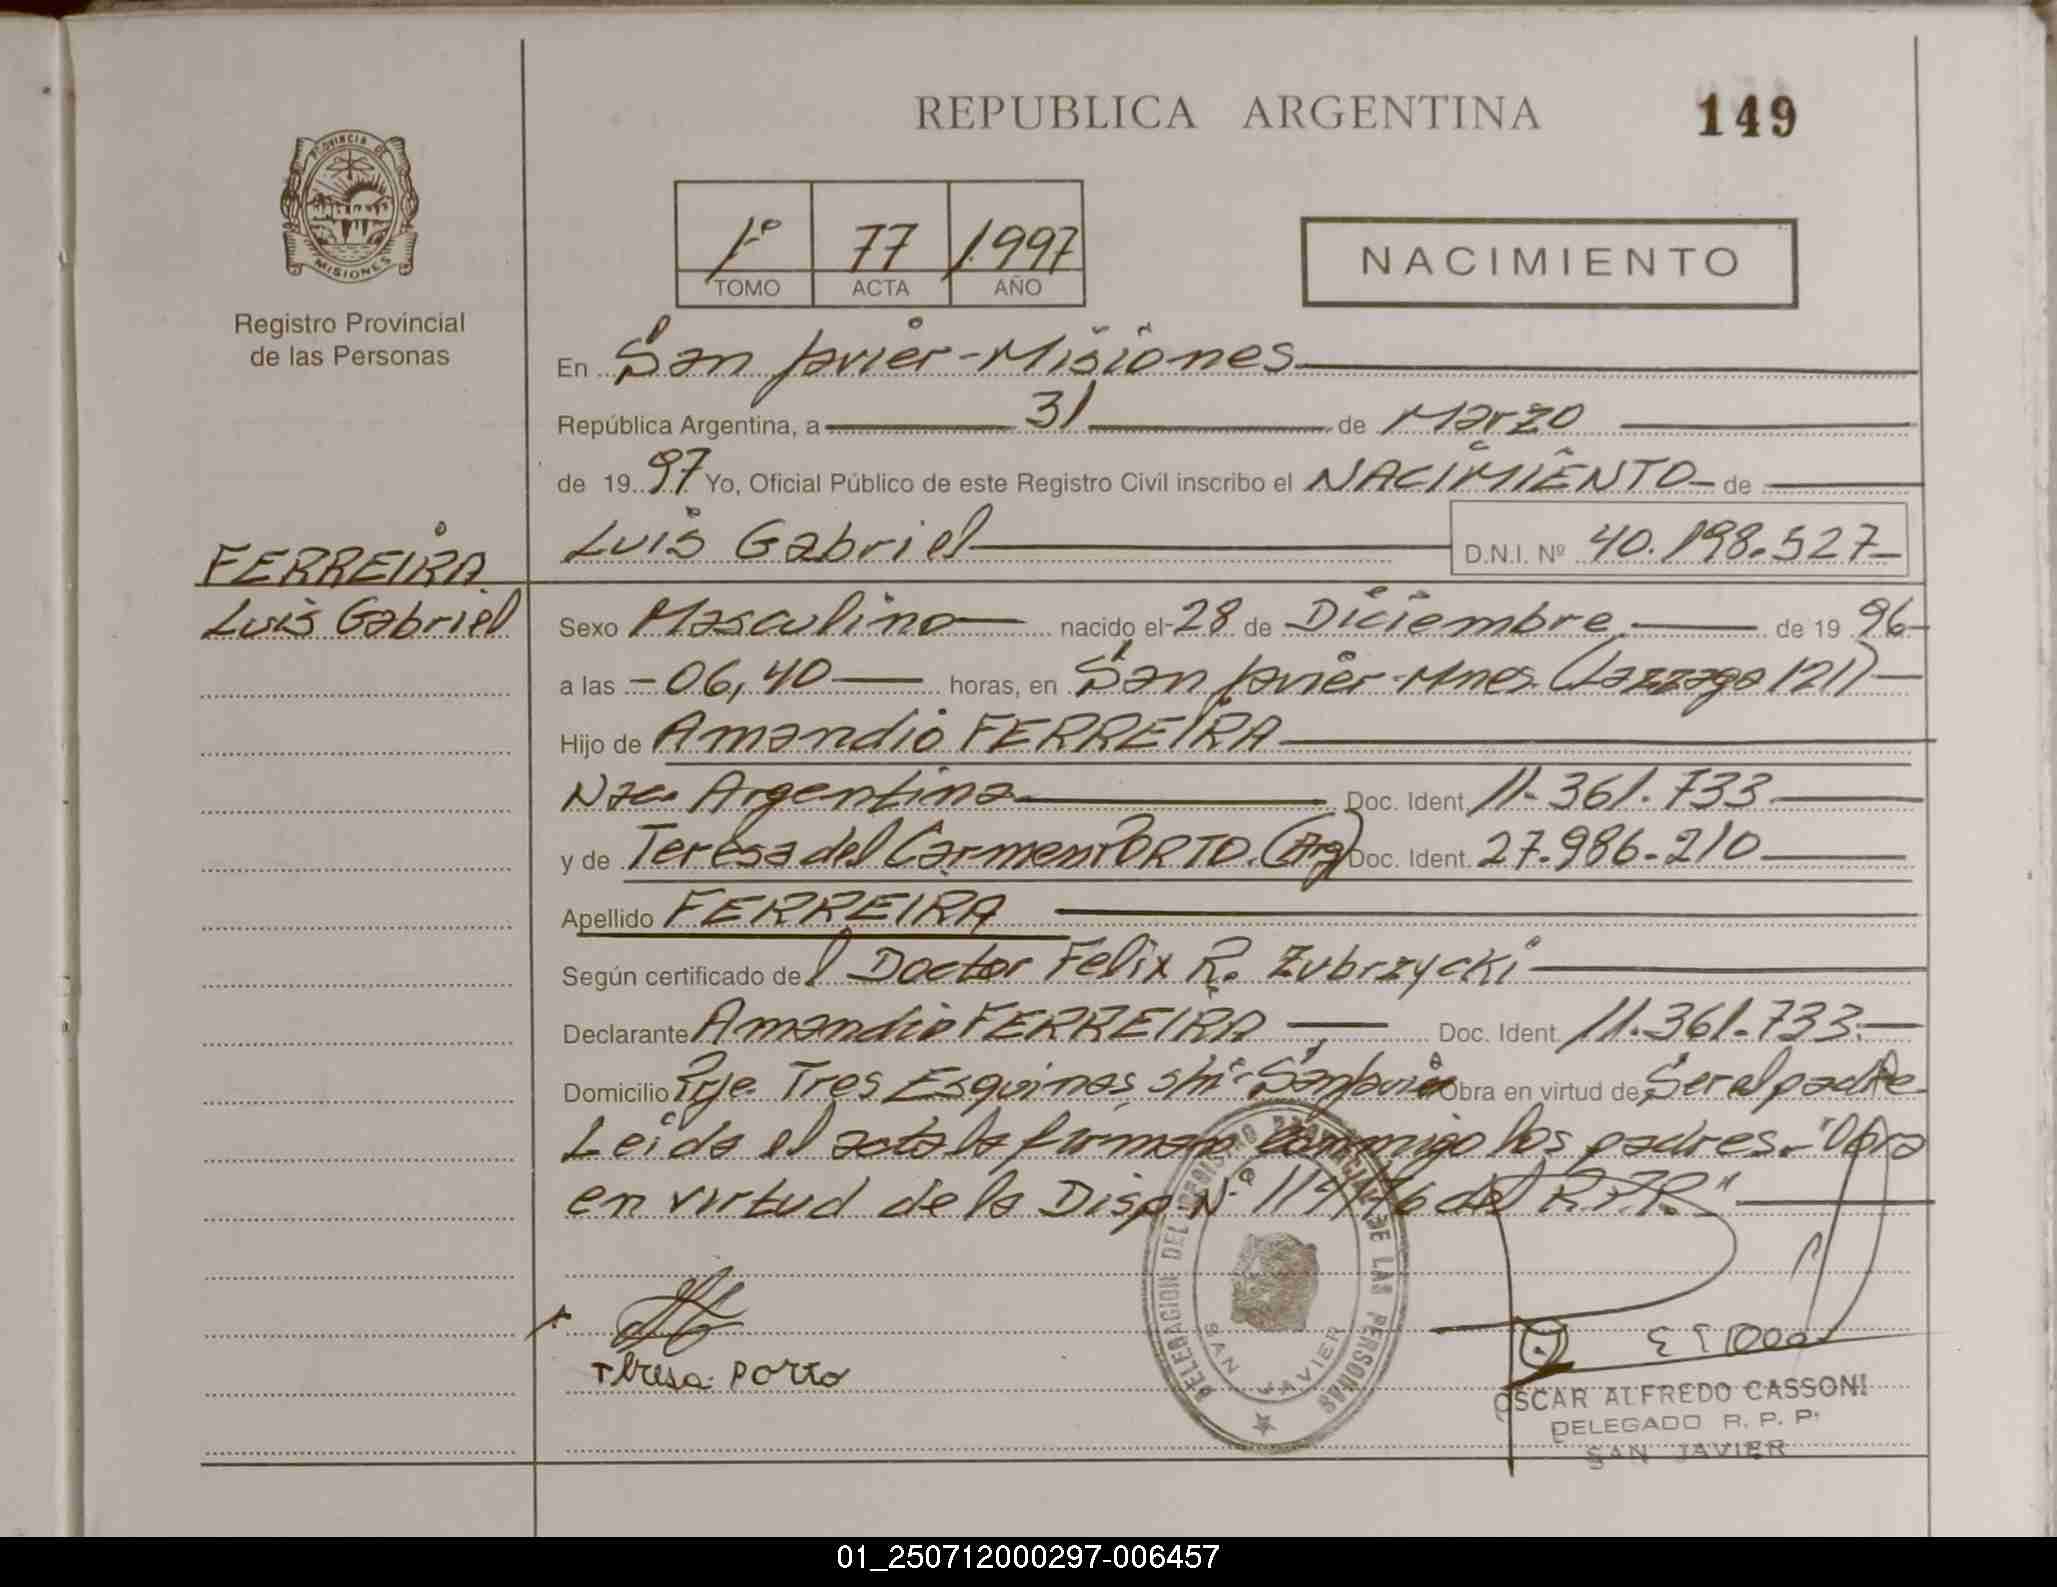 REPUBLICA ARGENTINA
149
PROVINCIA DE
MISIONES
Registro Provincial
de las Personas
1º 77 1.997
TOMO ACTA AÑO
NACIMIENTO
En San Javier-Misiones
República Argentina, a 31 de Marzo
de 19 97 Yo, Oficial Público de este Registro Civil inscribo el NACIMIENTO de
Luis Gabriel D.N.I. Nº 40.198.527
FERREIRA
Luis Gabriel
Sexo Masculino nacido el 28 de Diciembre de 19 96
a las 06,40 horas, en San Javier-Mnes. (Lazzaga 121)
Hijo de Amandio FERREIRA
Nac. Argentina Doc. Ident. 11.361.733
y de Teresa del Carmen PORTO. (Arg) Doc. Ident. 27.986.210
Apellido FERREIRA
Según certificado del Doctor Felix R. Zubrzycki
Declarante Amandio FERREIRA Doc. Ident. 11.361.733.
Domicilio Pje. Tres Esquinas s/n San Javier Obra en virtud de Ser el padre
Leida el acta la firman conmigo los padres. "Obra
en virtud de la Disp Nº 114/76 del R.P.P."
DELEGACION DEL REGISTRO PROVINCIAL DE LAS PERSONAS
SAN JAVIER
Teresa Porto
OSCAR ALFREDO CASSONI
DELEGADO R. P. P.
SAN JAVIER
01_250712000297-006457